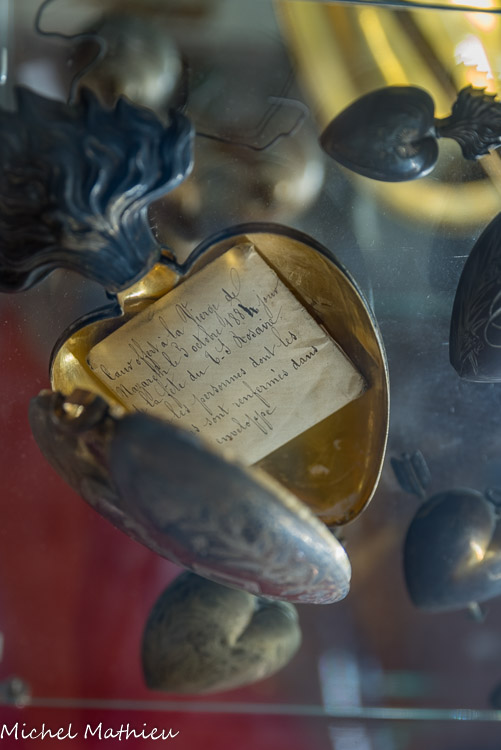 Cœur offert à la Vierge de
Nazareth le 3 octobre 1884 jour
la fête du T. S. Rosaire
les personnes dont les
s sont renfermés dans
enveloppe
Michel Mathieu